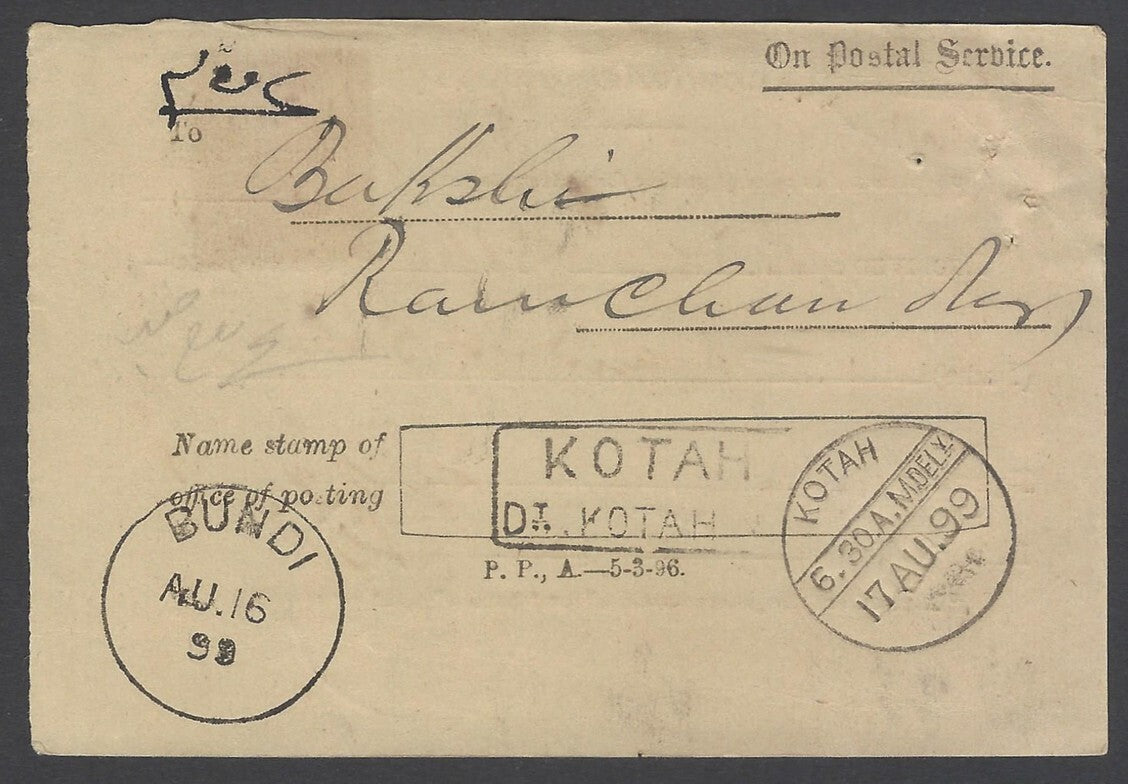 On Postal Service.
To
Bakshi
Ramchander
Name stamp of
office of posting
KOTAH
DT. KOTAH
P. P., A.—5-3-96.
BUNDI
AU.16
99
KOTAH
6.30.A.M.DELY.
17 AU.99